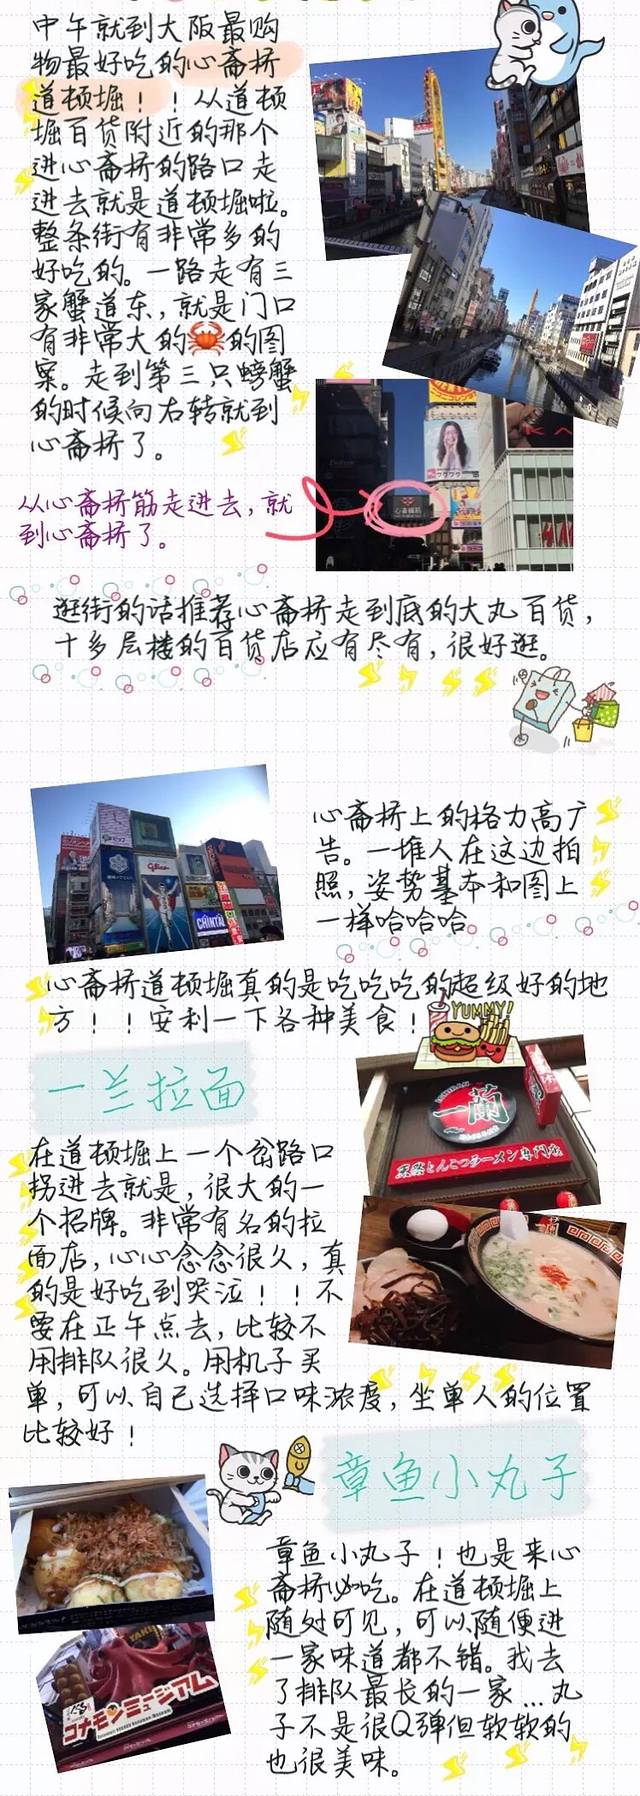 中午就到大阪最购
物最好吃的心斋桥
道顿堀！！从道顿
堀百货附近的那个
进心斋桥的路口走
进去就是道顿堀啦。
整条街有非常多的
好吃的。一路走有三
家蟹道东，就是门口
有非常大的🦀的图
案。走到第三只螃蟹
的时候向右转就到
心斋桥了。
从心斋桥筋走进去，就
到心斋桥了。
心斋橋筋
H&M
逛街的话推荐心斋桥走到底的大丸百货，
十多层楼的百货店应有尽有，很好逛。
Glico
CHINTAI
心斋桥上的格力高广
告。一堆人在这边拍
照，姿势基本和图上
一样哈哈哈
心斋桥道顿堀真的是吃吃吃的超级好的地
方！！安利一下各种美食！
YUMMY!
一兰拉面
一蘭
天然とんこつラーメン専門店
在道顿堀上一个岔路口
拐进去就是，很大的一
个招牌。非常有名的拉
面店，心心念念很久，真
的是好吃到哭泣！！不
要在正午点去，比较不
用排队很久。用机子买
单，可以自己选择口味浓度，坐单人的位置
比较好！
章鱼小丸子
コナモンミュージアム
章鱼小丸子！也是来心
斋桥必吃。在道顿堀上
随处可见，可以随便进
一家味道都不错。我去
了排队最长的一家...丸
子不是很Q弹但软软的
也很美味。